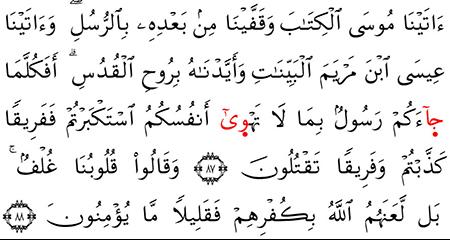 ءَاتَيْنَا مُوسَى ٱلْكِتَٰبَ وَقَفَّيْنَا مِنۢ بَعْدِهِۦ بِٱلرُّسُلِ ۖ وَءَاتَيْنَا
عِيسَى ٱبْنَ مَرْيَمَ ٱلْبَيِّنَٰتِ وَأَيَّدْنَٰهُ بِرُوحِ ٱلْقُدُسِ ۗ أَفَكُلَّمَا
جَآءَكُمْ رَسُولٌۢ بِمَا لَا تَهْوَىٰٓ أَنفُسُكُمُ ٱسْتَكْبَرْتُمْ فَفَرِيقًا
كَذَّبْتُمْ وَفَرِيقًا تَقْتُلُونَ ٨٧ وَقَالُوا۟ قُلُوبُنَا غُلْفٌۢ ۚ
بَل لَّعَنَهُمُ ٱللَّهُ بِكُفْرِهِمْ فَقَلِيلًا مَّا يُؤْمِنُونَ ٨٨